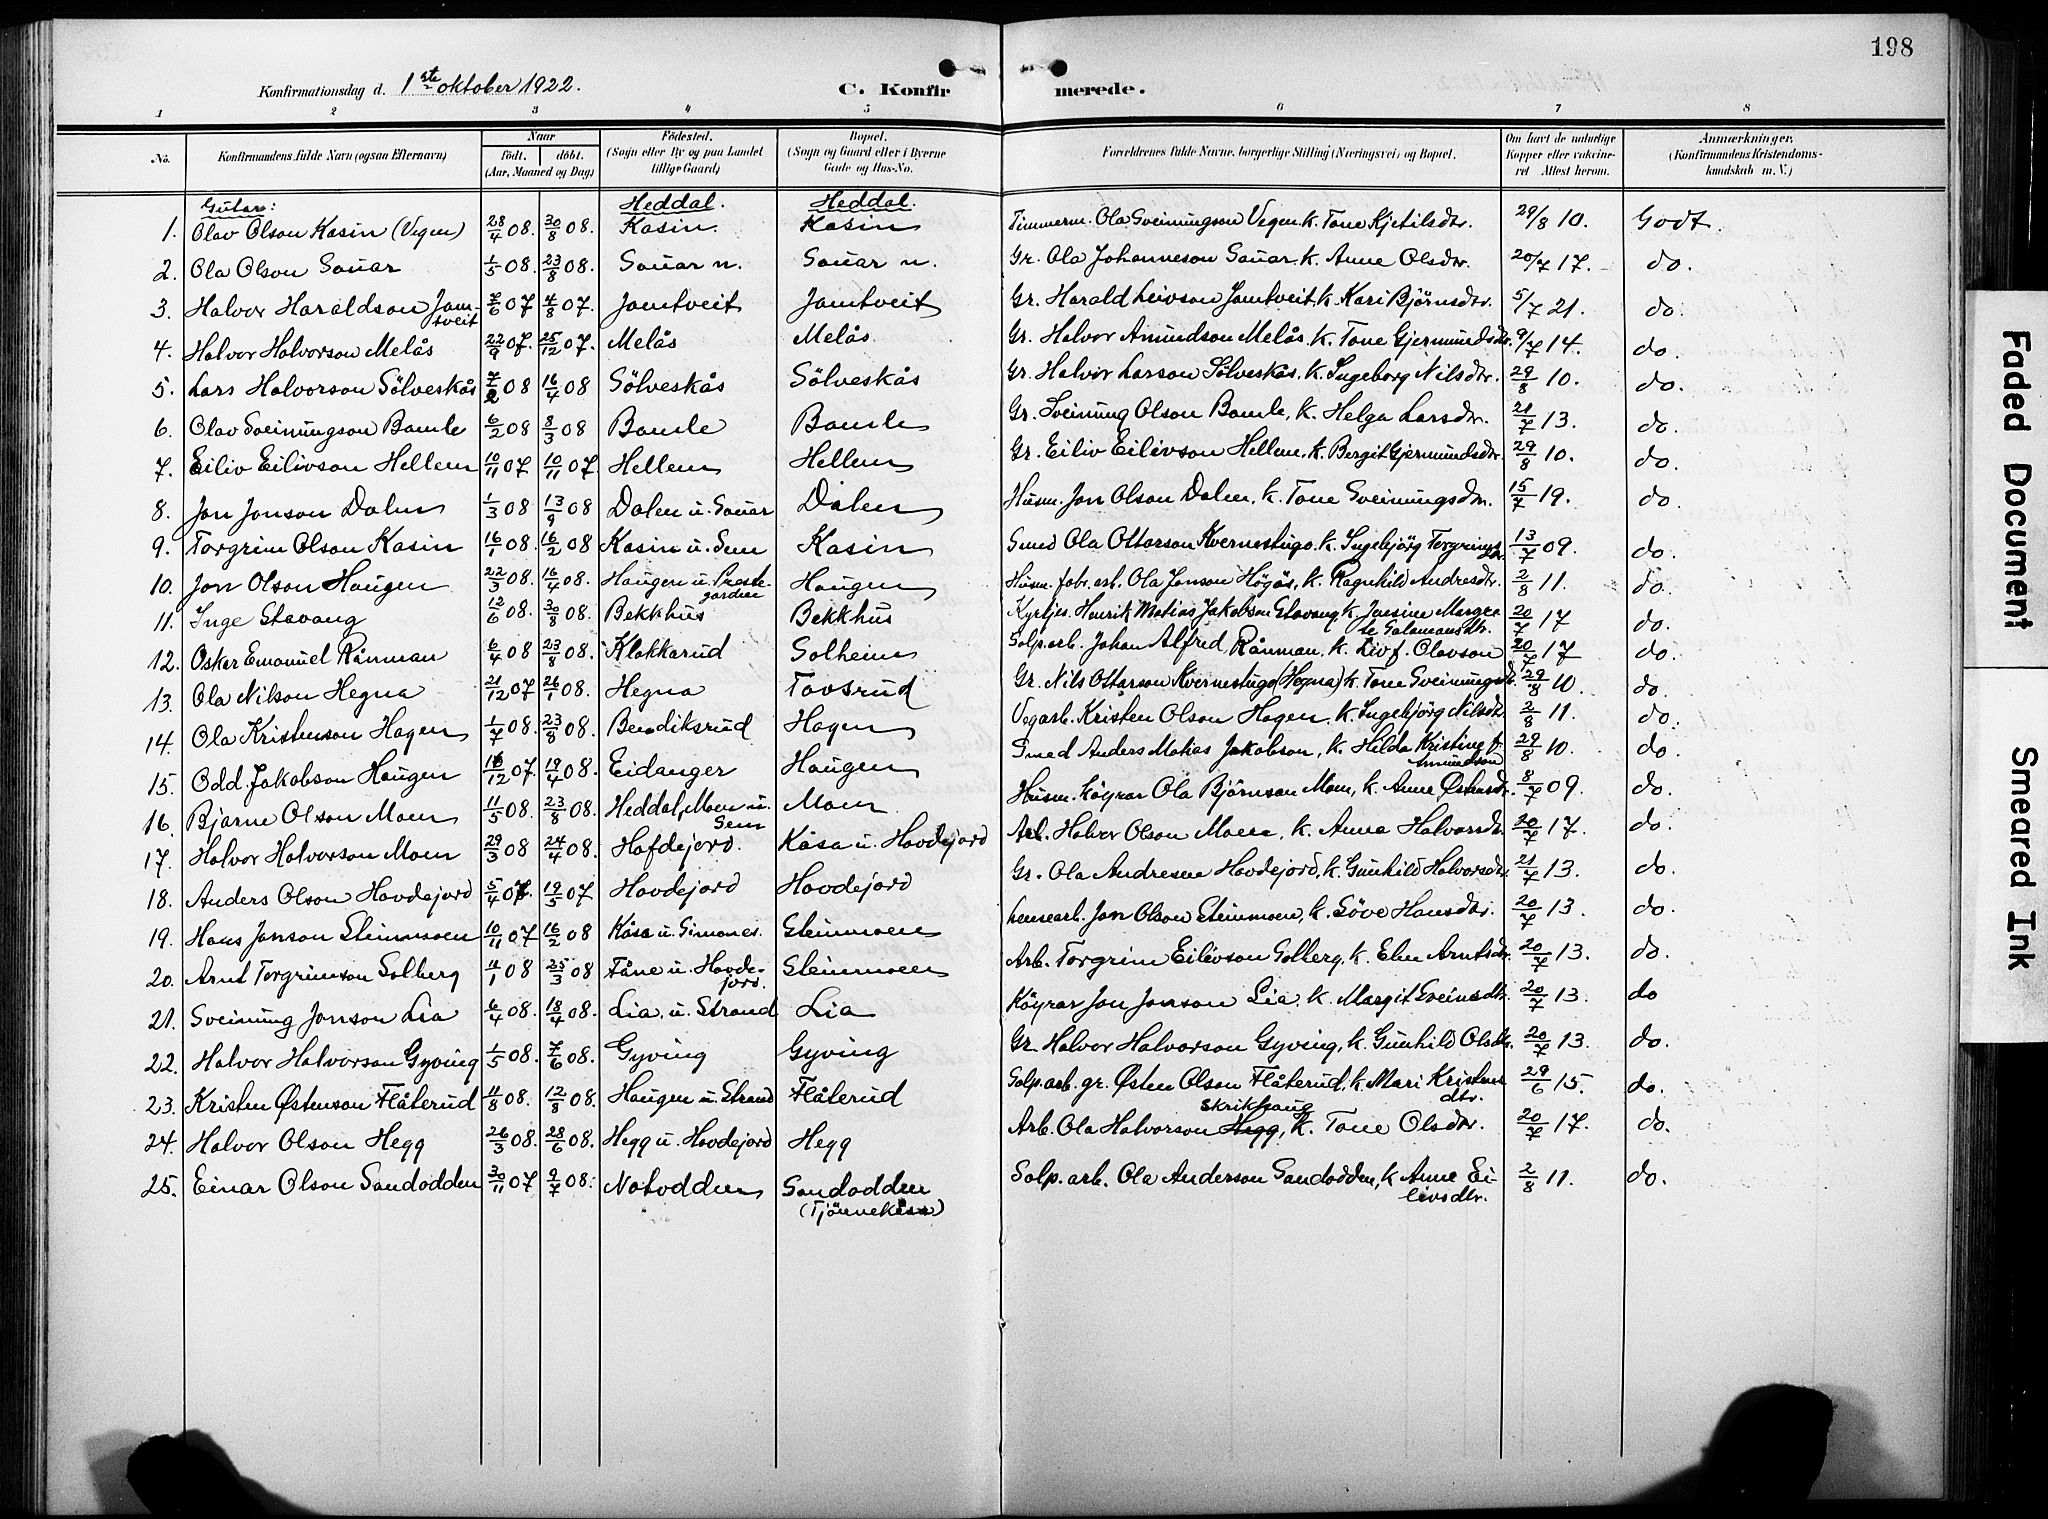 198
Konfirmationsdag d. 1ste oktober 1922. C. Konfirmerede.
1 2 3 4 5 6 7 8
No. Konfirmandens fulde Navn (ogsaa Efternavn) Naar født. døbt. (Aar, Maaned og Dag) Fødested. (Sogn eller By og paa Landet tillige Gaard) Bopæl. (Sogn og Gaard eller i Byerne Gade og Hus-No. Forældrenes fulde Navne, borgerlige Stilling (Næringsvei) og Bopæl. Om havt de naturlige Kopper eller vakcineret Attest herom. Anmærkninger. (Konfirmandens Kristendomskundskab m. V.)
Gutar: Heddal. Heddal.
1. Olav Olson Kasin (Vegen) 28/4 08. 30/8 08. Kasin. Kasin Timmerm. Ola Sveinungson Vegen. k. Tone Kjetilsdtr. 29/8 10. Godt.
2. Ola Olson Sauar 1/5 08. 23/8 08. Sauar n. Sauar n. Gr. Ola Johanneson Sauar. k. Anne Olsdtr. 20/7 17. do.
3. Halvor Haraldson Jamtveit 7/6 07 4/8 07. Jamtveit Jamtveit Gr. Harald Leivson Jamtveit. k. Kari Bjørnsdtr. 5/7 21. do.
4. Halvor Halvorson Melås 22/9 07. 25/12 07. Melås Melås Gr. Halvor Amundson Melås. k. Tone Gjermundsdtr. 9/7 14. do.
5. Lars Halvorson Sölveskås 7/2 08 16/4 08 Sölveskås Sölveskås Gr. Halvor Larson Sölveskås. k. Ingeborg Nilsdtr. 29/8 10. do.
6. Olav Sveinungson Bamle 6/2 08 8/3 08 Bamle Bamle Gr. Sveinung Olson Bamle, k. Helga Larsdtr. 21/7 13. do.
7. Eiliv Eilivson Hellem 10/11 07 10/11 07. Hellem Hellem Gr. Eiliv Eilivson Hellem. k. Bergit Gjermundsdtr. 29/8 10. do.
8. Jon Jonson Dalen 1/3 08 13/9 08 Dalen u. Sauar Dalen Husm. Jon Olson Dalen, k. Tone Sveinungsdtr. 15/7 19. do.
9. Torgrim Olson Kasin 16/1 08. 16/2 08 Kasin u. Sem Kasin Smed Ola Ottarson Kvernestugo. k. Ingebjörg Torgrimsdtr. 13/7 09. do.
10. Jon Olson Haugen 22/3 08. 16/4 08. Haugen u. Prestegarden Haugen Husm. fabr. arb. Ola Jonson Högås, k. Ragnhild Andresdtr. 2/8 11. do.
11. Inge Stavang 12/6 08. 30/8 08. Bekkhus Bekkhus Kyrkjes. Henrik Matias Jakobson Stavang, k. Jensine Margrete Salamonsdtr. 20/7 17 do.
12. Oskar Emanuel Rånman 6/4 08 23/8 08. Klokkarud Solheim Solp. arb. Johan Alfred Rånman, k. Liv f. Olavson 20/7 17 do.
13. Ola Nilson Hegna 21/12 07 26/1 08. Hegna Tovsrud Gr. Nils Ottarson Kvernestugo (Hegna) k. Tone Sveinungsdtr. 29/8 10. do.
14. Ola Kristenson Hagen 1/7 08. 23/8 08. Bendiksrud Hagen Vegarb. Kristen Olson Hagen. k. Ingebjörg Nilsdtr. 2/8 11. do.
15. Odd Jakobson Haugen 16/12 07. 19/4 08. Eidanger Haugen Smed Anders Matias Jakobson, k. Hilda Kristine f. Amundson 29/8 10. do.
16. Bjarne Olson Moen 11/5 08. 23/8 08. Heddal, Moen u. Sem Moen Husm. köyrar Ola Björnson Moen, k. Anne Østensdtr. 8/7 09. do.
17. Halvor Halvorson Moen 29/3 08 24/4 08. Hafdejord. Kåsa u. Hovdejord Arb. Halvor Olson Moen, k. Anna Halvorsdtr. 20/7 17. do.
18. Anders Olson Hovdejord 5/4 07. 19/5 07 Hovdejord Hovdejord Gr. Ola Andresen Hovdejord, k. Gunhild Halvorsdtr. 21/7 13. do.
19. Hans Jonson Steinmoen 10/11 07 16/2 08 Kåsa u. Simones. Steinmoen Lensearb. Jon Olson Steinmoen, k. Söve Hansdtr. 20/7 13. do.
20. Arnt Torgrimson Solberg 11/1 08 25/3 08 Fåne u. Hovdejord. Steinmoen Arb. Torgrim Eilivson Solberg, k. Elen Arntsdtr. 20/7 13. do.
21. Sveinung Jonson Lia 6/4 08. 18/4 08. Lia. u. Strand Lia Köyrar Jon Jonson Lia. k. Margit Sveinsdtr. 20/7 13. do
22. Halvor Halvorson Gyving 1/5 08. 7/6 08. Gyving Gyving Gr. Halvor Halvorson Gyving, k. Gunhild Olsdtr. 20/7 13. do.
23. Kristen Østenson Flåterud 11/8 08. 12/8 08. Haugen u. Strand Flåterud Solp. arb. gr. Østen Olson Flåterud, k. Mari Kristensdtr. 29/6 15. do.
24. Halvor Olson Hegg 26/3 08. 28/6 08. Hegg u. Hovdejord Hegg Arb. Ola Halvorson Hegg, Skrikhaug k. Tone Olsdtr. 20/7 17. do.
25. Einar Olson Sandodden 30/11 07 9/7 08. Notodden Sandodden (Tjönnekåsa) Solp. arb. Ola Anderson Sandodden, k. Anne Eilivsdtr. 2/8 11. do.
Faded Document
Smeared Ink